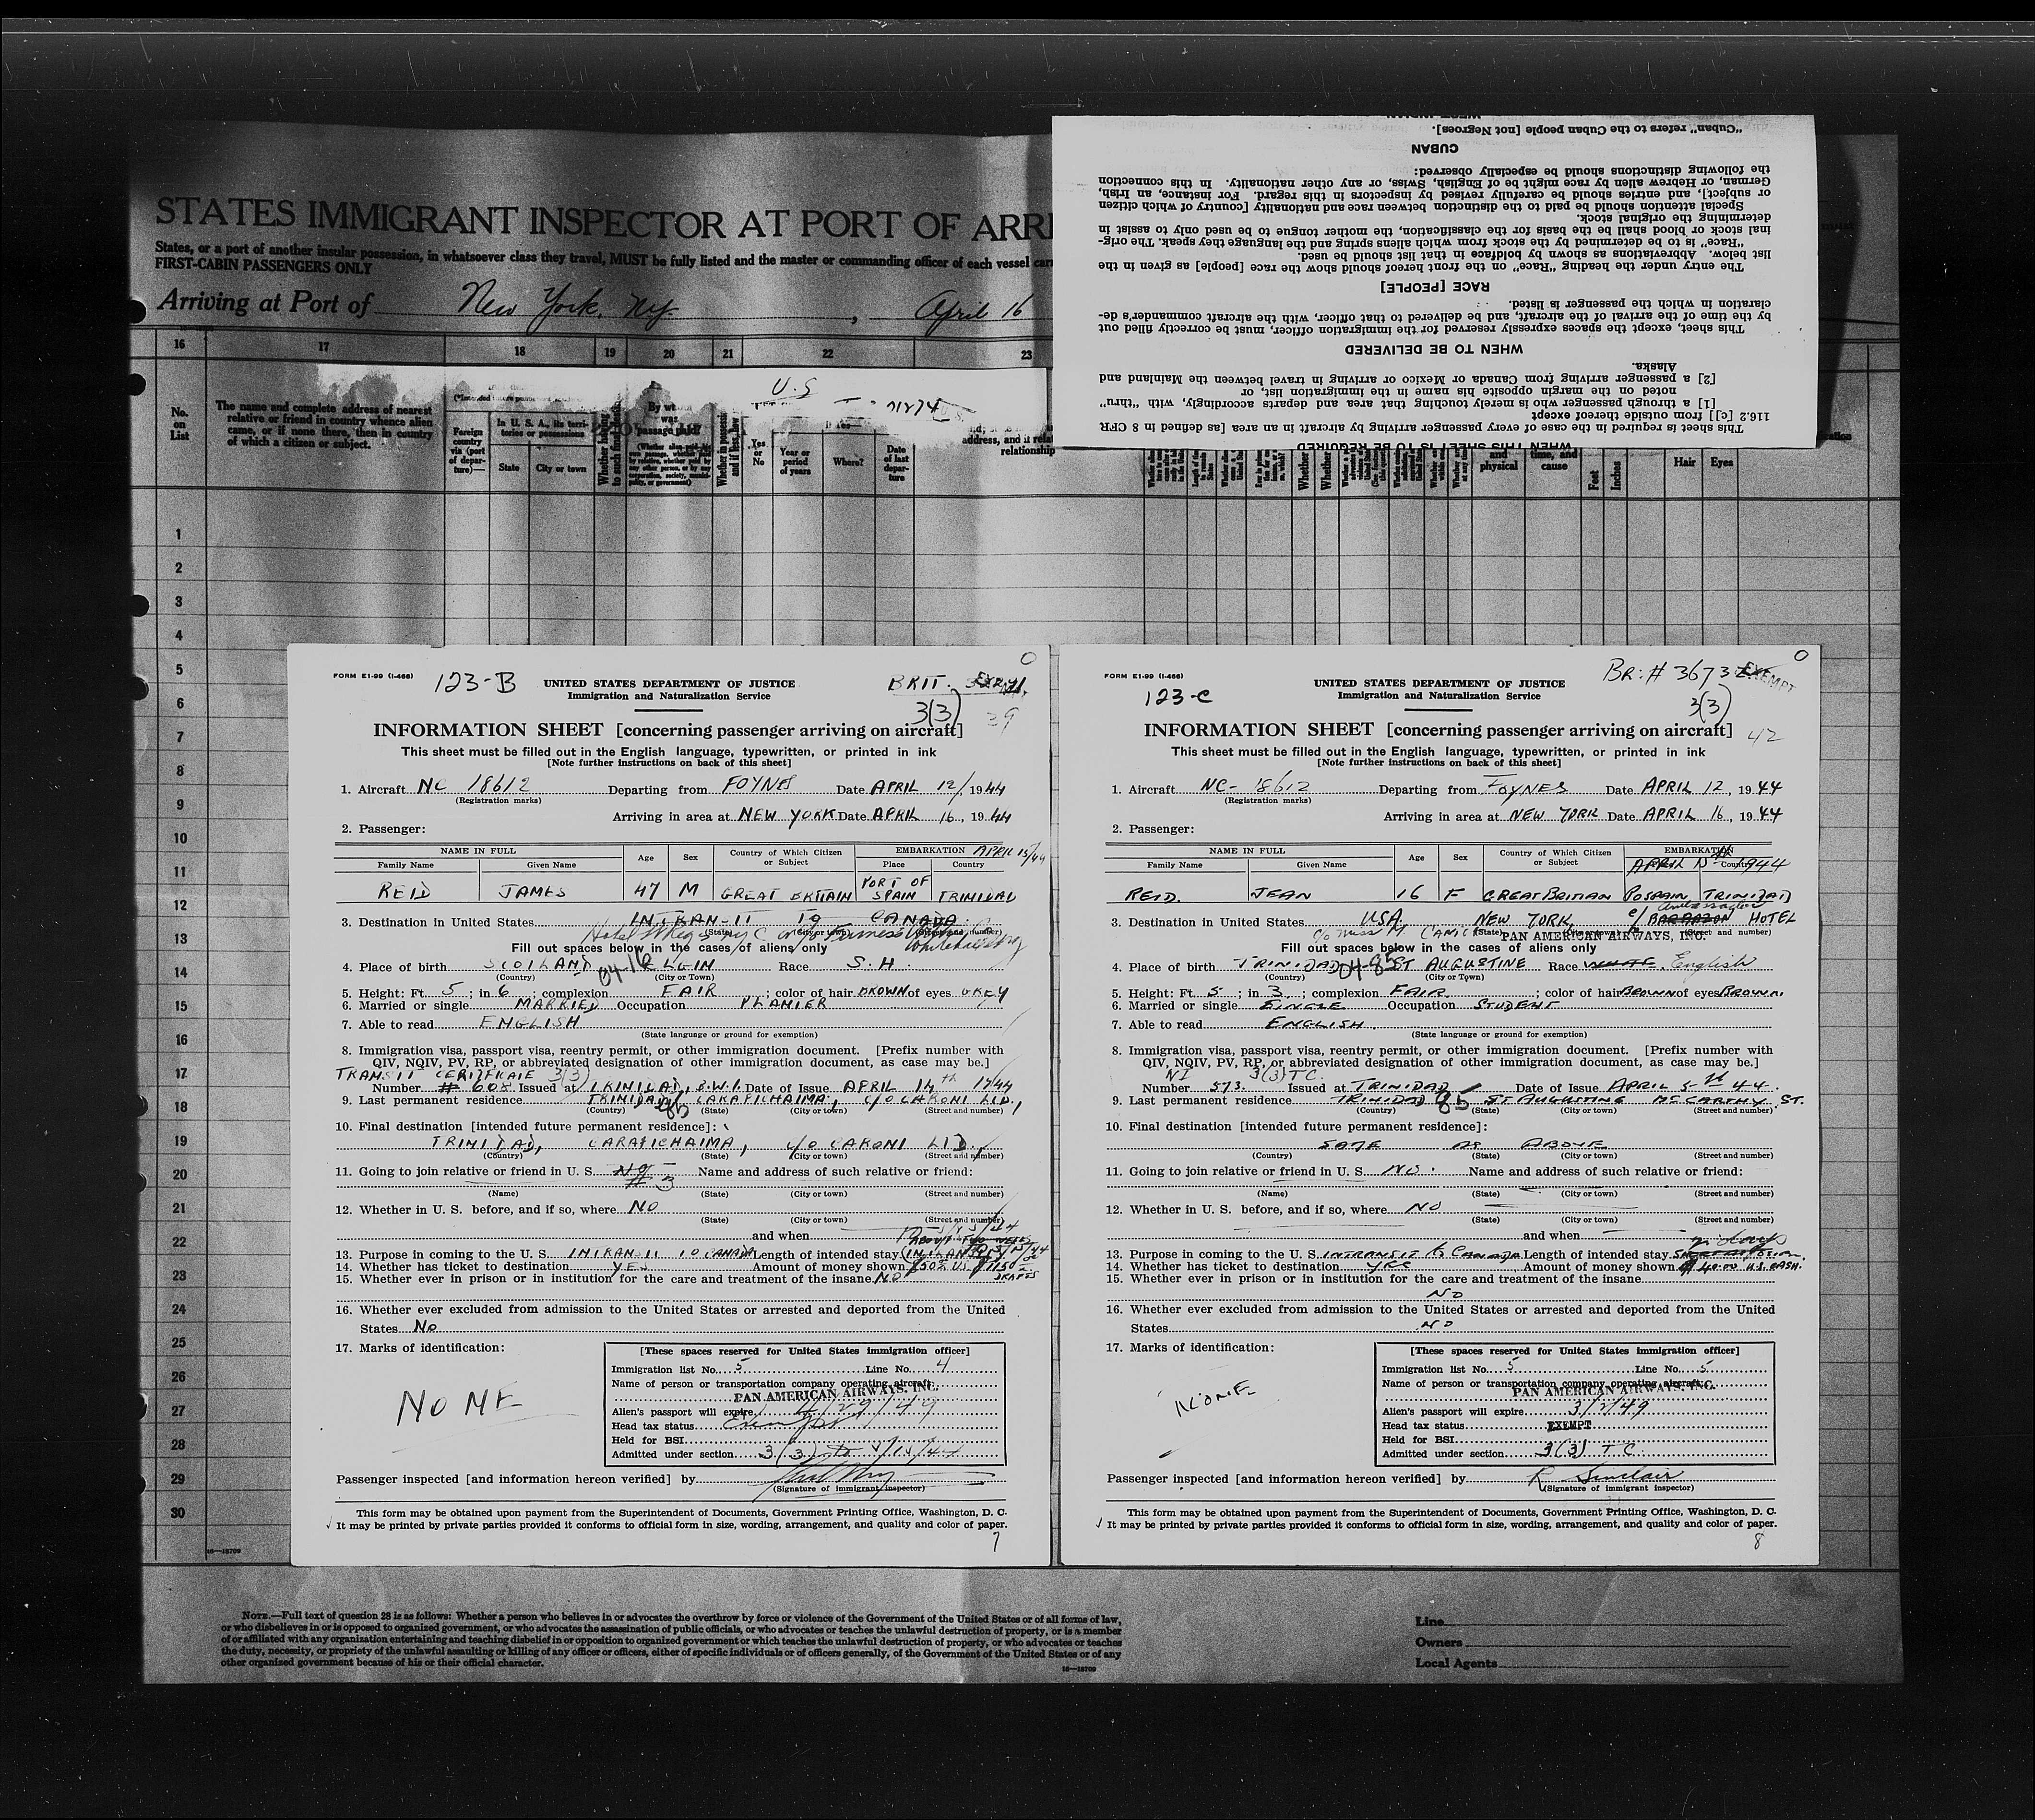 STATES IMMIGRANT INSPECTOR AT PORT OF ARRI
States, or a port of another insular possession, in whatsoever class they travel, MUST be fully listed and the master or commanding officer of each vessel car
FIRST-CABIN PASSENGERS ONLY
Arriving at Port of New York, NY. , April 16
16 17 18 19 20 21 22 23
No. on List
The name and complete address of nearest relative or friend in country whence alien came, or if none there, then in country of which a citizen or subject.
Foreign country via (port of departure)—
In U. S. A., its territories or possessions
State City or town
By
was
passage paid?
Yes or No
Year or period of years
Where?
Date of last departure
U.S
address, and if
relationship
and physical
time, and cause
Feet
Inches
Hair Eyes
WHEN THIS SHEET IS TO BE REQUIRED
This sheet is required in the case of every passenger arriving by aircraft in an area [as defined in 8 CFR
116.2 [c]] from outside thereof except
[1] a through passenger who is merely touching that area and departs accordingly, with "thru"
noted on the margin opposite his name in the immigration list, or
[2] a passenger arriving from Canada or Mexico or arriving in travel between the Mainland and
Alaska.
WHEN TO BE DELIVERED
This sheet, except the spaces expressly reserved for the immigration officer, must be correctly filled out
by the time of the arrival of the aircraft, and be delivered to that officer, with the aircraft commander's de-
claration in which the passenger is listed.
RACE [PEOPLE]
The entry under the heading "Race" on the front hereof should show the race [people] as given in the
list below. Abbreviations as shown by boldface in that list should be used.
"Race" is to be determined by the stock from which aliens spring and the language they speak. The orig-
inal stock or blood shall be the basis for the classification, the mother tongue to be used only to assist in
determining the original stock.
Special attention should be paid to the distinction between race and nationality [country of which citizen
or subject], and entries should be carefully revised by inspectors in this regard. For instance, an Irish,
German, or Hebrew alien by race might be of English, Swiss, or any other nationality. In this connection
the following distinctions should be especially observed:
CUBAN
"Cuban" refers to the Cuban people [not Negroes].
WEST INDIAN
1
2
3
4
5
6
7
8
9
10
11
12
13
14
15
16
17
18
19
20
21
22
23
24
25
26
27
28
29
30
FORM E1-99 (I-466)
123-B
UNITED STATES DEPARTMENT OF JUSTICE
Immigration and Naturalization Service
BRIT.
3(3)
39
INFORMATION SHEET [concerning passenger arriving on aircraft]
This sheet must be filled out in the English language, typewritten, or printed in ink
[Note further instructions on back of this sheet]
1. Aircraft NC 18612 Departing from FOYNES Date APRIL 12/, 1944
(Registration marks)
Arriving in area at NEW YORK Date APRIL 16, 1944
2. Passenger:
NAME IN FULL Age Sex Country of Which Citizen or Subject EMBARKATION APRIL 15/44
Family Name Given Name Place Country
REID JAMES 47 M GREAT BRITAIN PORT OF SPAIN TRINIDAD
3. Destination in United States INTRANSIT TO CANADA
(State) (City or town) (Street and number)
Fill out spaces below in the cases of aliens only
4. Place of birth SCOTLAND 04-16 ELGIN Race S.H.
(Country) (City or Town)
5. Height: Ft. 5; in 6; complexion FAIR; color of hair BROWN of eyes GREY
6. Married or single MARRIED Occupation PLANTER
7. Able to read ENGLISH
(State language or ground for exemption)
8. Immigration visa, passport visa, reentry permit, or other immigration document. [Prefix number with
QIV, NQIV, PV, RP, or abbreviated designation of other immigration document, as case may be.]
TRANSIT CERTIFICATE 3(3)
Number Issued at TRINIDAD, B.W.I. Date of Issue APRIL 14th 1944
9. Last permanent residence TRINIDAD, 85 CARAPICHAIMA, C/O CARONI LTD.,
(Country) (State) (City or town) (Street and number)
10. Final destination [intended future permanent residence]:
TRINIDAD, CARAPICHAIMA, C/O CARONI LTD.
(Country) (State) (City or town) (Street and number)
11. Going to join relative or friend in U. S. NO Name and address of such relative or friend:
(Name) (State) (City or town) (Street and number)
12. Whether in U. S. before, and if so, where NO
(State) (City or town) (Street and number)
and when
13. Purpose in coming to the U. S. INTRANSIT TO CANADA Length of intended stay
14. Whether has ticket to destination YES Amount of money shown
15. Whether ever in prison or in institution for the care and treatment of the insane NO
16. Whether ever excluded from admission to the United States or arrested and deported from the United
States NO
17. Marks of identification:
NONE
[These spaces reserved for United States immigration officer]
Immigration list No. 5 Line No. 4
Name of person or transportation company operating aircraft
PAN AMERICAN AIRWAYS, INC.
Alien's passport will expire 4/29/49
Head tax status Exempt
Held for BSI
Admitted under section 3(3)
Passenger inspected [and information hereon verified] by
(Signature of immigrant inspector)
This form may be obtained upon payment from the Superintendent of Documents, Government Printing Office, Washington, D. C.
It may be printed by private parties provided it conforms to official form in size, wording, arrangement, and quality and color of paper.
7
FORM E1-99 (I-466)
123-C
UNITED STATES DEPARTMENT OF JUSTICE
Immigration and Naturalization Service
BR: # 3673 EXEMPT
3(3)
42
INFORMATION SHEET [concerning passenger arriving on aircraft]
This sheet must be filled out in the English language, typewritten, or printed in ink
[Note further instructions on back of this sheet]
1. Aircraft NC-18612 Departing from FOYNES Date APRIL 12, 1944
(Registration marks)
Arriving in area at NEW YORK Date APRIL 16, 1944
2. Passenger:
NAME IN FULL Age Sex Country of Which Citizen or Subject EMBARKATION
Family Name Given Name Country
REID. JEAN 16 F GREAT BRITIAN TRINIDAD
3. Destination in United States USA. NEW YORK, BARBAZON HOTEL
(State) (City or town) (Street and number)
PAN AMERICAN AIRWAYS, INC.
Fill out spaces below in the cases of aliens only
4. Place of birth TRINIDAD 04-85 ST AUGUSTINE Race English
(Country) (City or Town)
5. Height: Ft. 5; in 3; complexion FAIR; color of hair BROWN of eyes BROWN.
6. Married or single SINGLE Occupation STUDENT
7. Able to read ENGLISH.
(State language or ground for exemption)
8. Immigration visa, passport visa, reentry permit, or other immigration document. [Prefix number with
QIV, NQIV, PV, RP, or abbreviated designation of other immigration document, as case may be.]
NI 3(3) TC.
Number 573. Issued at TRINIDAD Date of Issue APRIL 5th 44.
9. Last permanent residence TRINIDAD 85 ST AUGUSTINE MCCARTHY ST.
(Country) (State) (City or town) (Street and number)
10. Final destination [intended future permanent residence]:
SAME AS ABOVE
(Country) (State) (City or town) (Street and number)
11. Going to join relative or friend in U. S. NO. Name and address of such relative or friend:
(Name) (State) (City or town) (Street and number)
12. Whether in U. S. before, and if so, where NO
(State) (City or town) (Street and number)
and when
13. Purpose in coming to the U. S. INTRANSIT to CANADA Length of intended stay
14. Whether has ticket to destination YES Amount of money shown $ 40.00 U.S. CASH.
15. Whether ever in prison or in institution for the care and treatment of the insane
NO
16. Whether ever excluded from admission to the United States or arrested and deported from the United
States NO
17. Marks of identification:
NONE
[These spaces reserved for United States immigration officer]
Immigration list No. 5 Line No. 5
Name of person or transportation company operating aircraft:
PAN AMERICAN AIRWAYS, INC.
Alien's passport will expire 3/2/49
Head tax status EXEMPT
Held for BSI
Admitted under section 3(3) T C.
Passenger inspected [and information hereon verified] by R Sinclair
(Signature of immigrant inspector)
This form may be obtained upon payment from the Superintendent of Documents, Government Printing Office, Washington, D. C.
It may be printed by private parties provided it conforms to official form in size, wording, arrangement, and quality and color of paper.
8
16—18709
NOTE.—Full text of question 28 is as follows: Whether a person who believes in or advocates the overthrow by force or violence of the Government of the United States or of all forms of law,
or who disbelieves in or is opposed to organized government, or who advocates the assassination of public officials, or who advocates or teaches the unlawful destruction of property, or is a member
of or affiliated with any organization entertaining and teaching disbelief in or opposition to organized government or which teaches the unlawful destruction of property, or who advocates or teaches
the duty, necessity, or propriety of the unlawful assaulting or killing of any officer or officers, either of specific individuals or of officers generally, of the Government of the United States or of any
other organized government because of his or their official character.
16—18709
Line
Owners
Local Agents